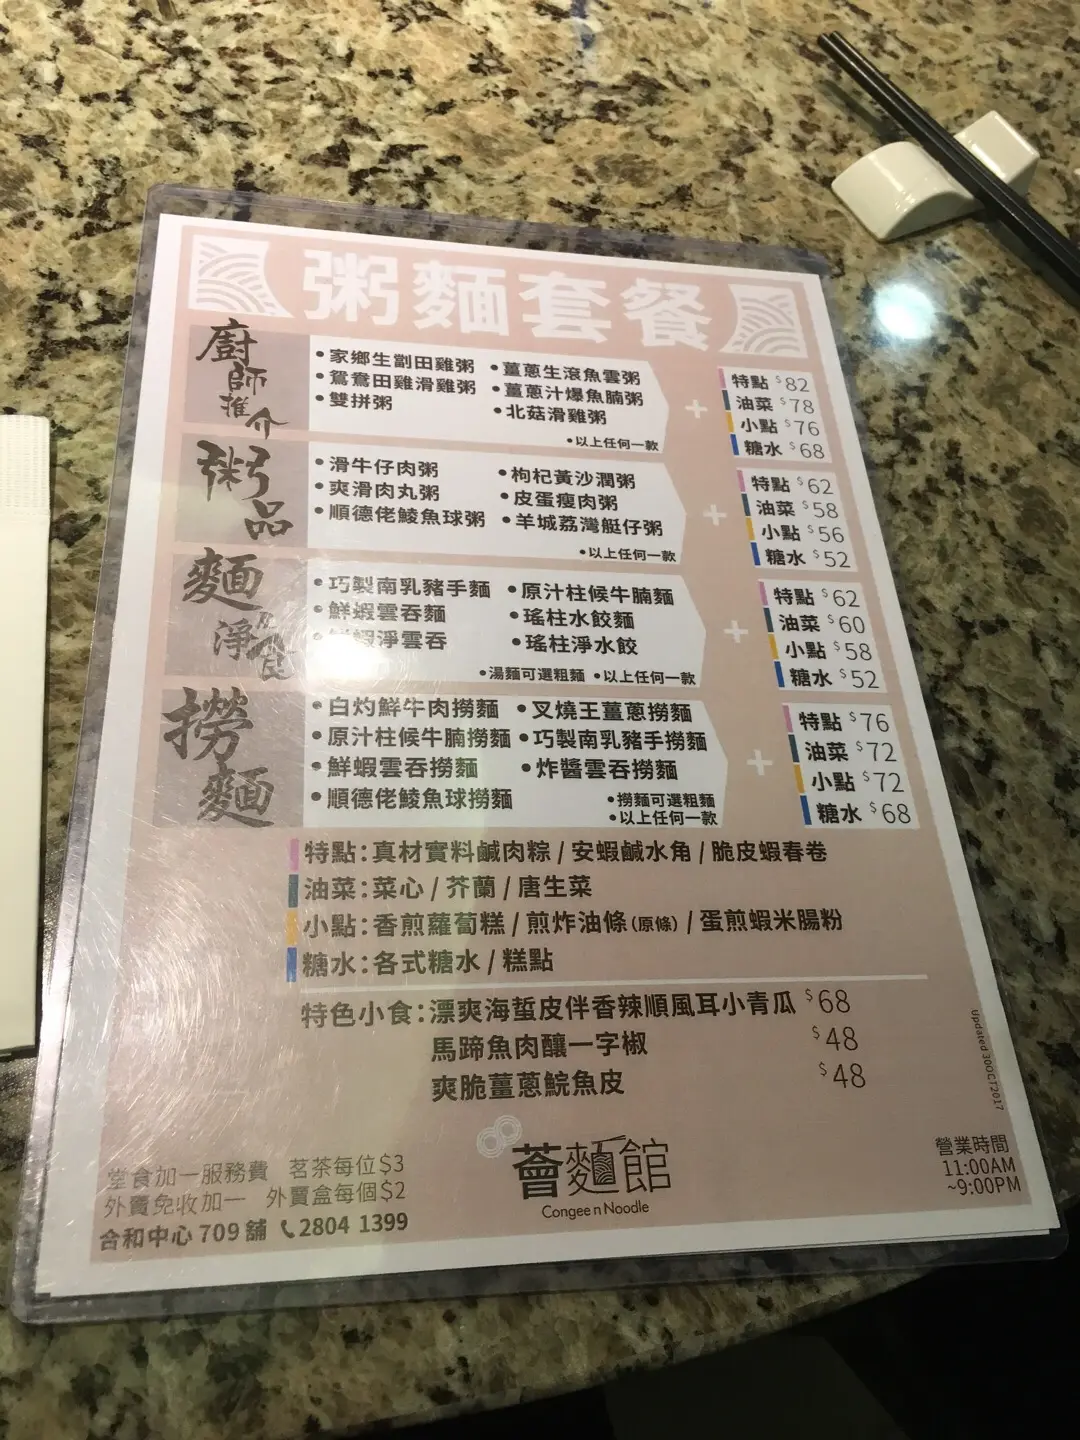 粥麵套餐
廚師推介
•家鄉生劏田雞粥 •薑蔥生滾魚雲粥
•鴛鴦田雞滑雞粥 •薑蔥汁爆魚腩粥
•雙拼粥 •北菇滑雞粥
•以上任何一款
+
特點 $82
油菜 $78
小點 $76
糖水 $68
粥品
•滑牛仔肉粥 •枸杞黃沙潤粥
•爽滑肉丸粥 •皮蛋瘦肉粥
•順德佬鯪魚球粥 •羊城荔灣艇仔粥
•以上任何一款
+
特點 $62
油菜 $58
小點 $56
糖水 $52
麵及淨食
•巧製南乳豬手麵 •原汁柱候牛腩麵
•鮮蝦雲吞麵 •瑤柱水餃麵
蝦淨雲吞 •瑤柱淨水餃
•湯麵可選粗麵 •以上任何一款
+
特點 $62
油菜 $60
小點 $58
糖水 $52
撈麵
•白灼鮮牛肉撈麵 •叉燒王薑蔥撈麵
•原汁柱候牛腩撈麵 •巧製南乳豬手撈麵
•鮮蝦雲吞撈麵 •炸醬雲吞撈麵
•順德佬鯪魚球撈麵 •撈麵可選粗麵
•以上任何一款
+
特點 $76
油菜 $72
小點 $72
糖水 $68
特點：真材實料鹹肉粽 / 安蝦鹹水角 / 脆皮蝦春卷
油菜：菜心 / 芥蘭 / 唐生菜
小點：香煎蘿蔔糕 / 煎炸油條(原條) / 蛋煎蝦米腸粉
糖水：各式糖水 / 糕點
特色小食：漂爽海蜇皮伴香辣順風耳小青瓜 $68
馬蹄魚肉釀一字椒 $48
爽脆薑蔥鯇魚皮 $48
updated 30OCT2017
堂食加一服務費 茗茶每位$3
外賣免收加一 外賣盒每個$2
合和中心 709 舖 2804 1399
薈麵館
Congee n Noodle
營業時間
11:00AM
~9:00PM